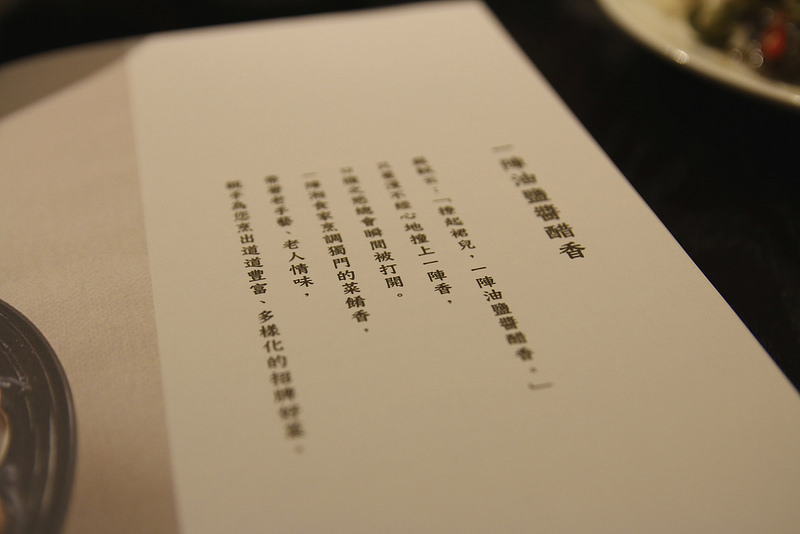 一陣油鹽醬醋香
：「撩起裙兒，一陣油鹽醬醋香。」
漫不經心地撞上一陣香，
之慾總會瞬間被打開。
一陣湘食家烹調獨門的菜餚香，
帶著老手藝、老人情味，
親手為您烹出道道豐富、多樣化的招牌好菜。